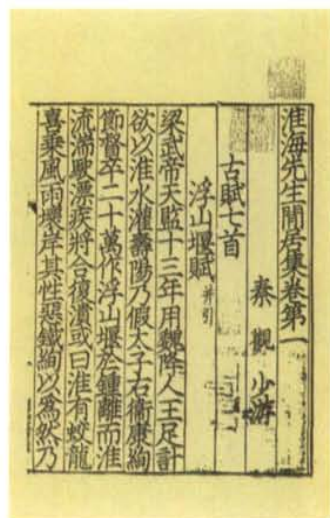 淮海先生閒居集卷第一
秦觀少游
古賦七首
浮山堰賦并引
梁武帝天監十三年用魏降人王足計
欲以淮水灌壽陽乃假太子右衛康絢
節督卒二十萬作浮山堰於鍾離而淮
流湍駛漂疾將合復潰或曰淮有蛟龍
喜乘風雨壞岸其性惡鐵絢以為然乃